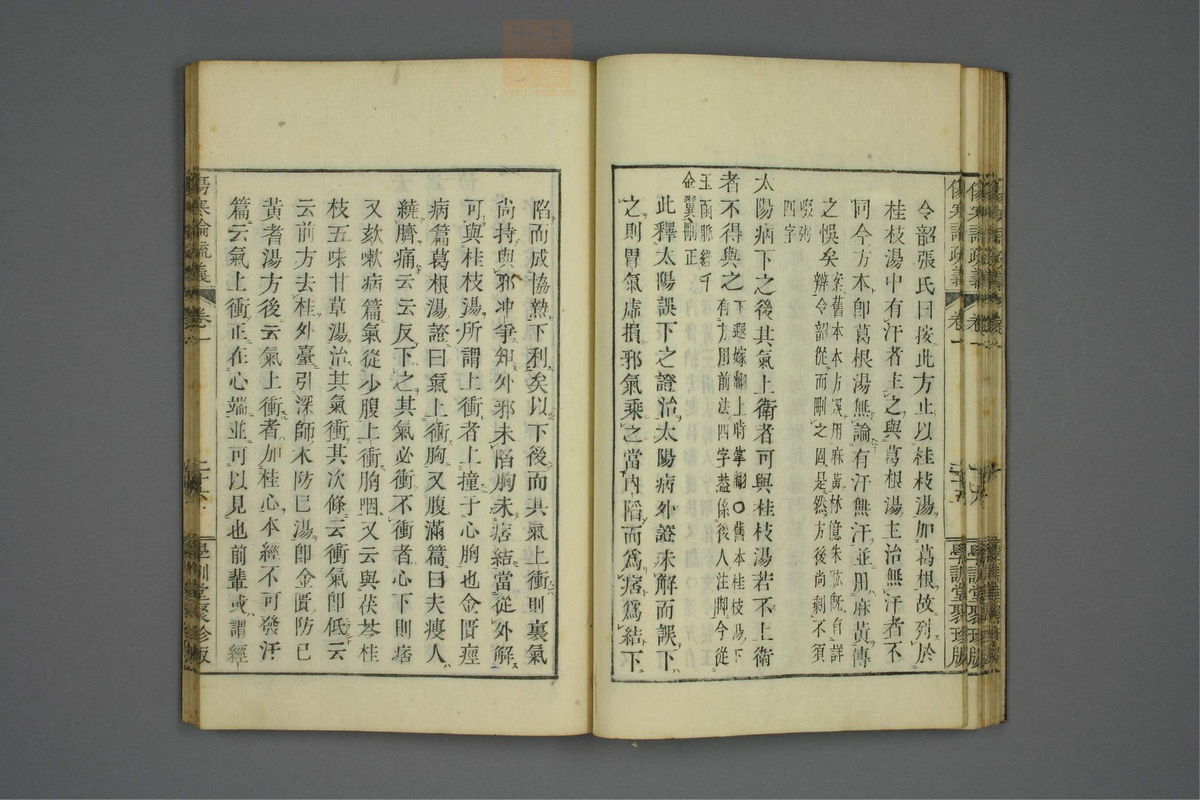 令韶張氏曰按此方止以桂枝湯加葛根故列於
桂枝湯中有汗者主之與葛根湯主治無汗者不
同今方本卽葛根湯無論有汗無汗並用麻黃傳
之悞矣 案舊本本方误用麻黃林億朱肱旣有詳
辨令韶從而刪之固是然方後尚剩不須
啜粥
四字
太陽病下之後其氣上衝者可與桂枝湯若不上衝
者不得與之 下遐嫁翻上時掌翻〇舊本桂枝湯下
有方用前法四字葢係後人注脚今從
玉函脈經千
金翼刪正
此釋太陽誤下之證治太陽病外證未解而誤下
之則胃氣虛損邪氣乘之當內陷而爲痞爲結下
陷而成協熱下利矣以下後而其氣上衝則裏氣
尚持與邪冲爭知外邪未陷胸未痞結當從外解
可與桂枝湯所謂上衝者上撞于心胸也金匱痙
病篇葛根湯證曰氣上衝胸又腹滿篇曰夫瘦人
繞臍痛云云反下之其氣必衝不衝者心下則痞
又欬嗽病篇氣從少腹上衝胸咽又云與茯苓桂
枝五味甘草湯治其氣衝其次條云衝氣卽低云
云前方去桂外臺引深師木防巳湯卽金匱防巳
黃耆湯方後云氣上衝者加桂心本經不可發汗
篇云氣上衝正在心端並可以見也前輩或謂經
傷寒論疏義
卷一
學訓堂聚珍版
傷寒論疏義
卷一
學訓堂聚珍版